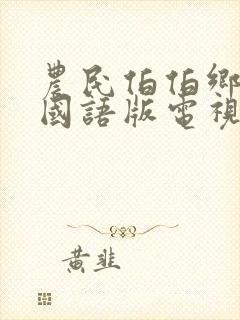 農民伯伯鄉
國語版電視
黃韭